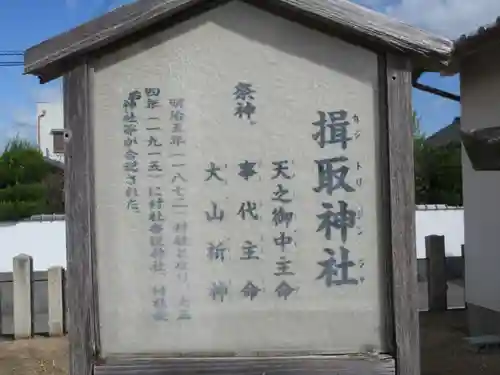 揖取神社
カジトリジンジャ
祭神
天之御中主命
事代主命
大山祈神
明治五年(一八七二)村社となり、大正
四年(一九一五)に村社
神社等が合祀された。